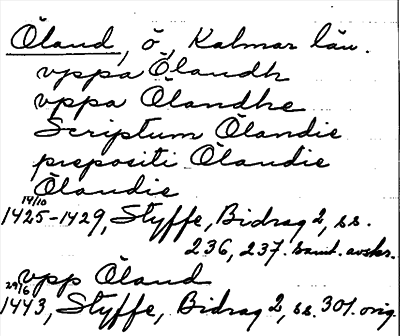 Öland, ö, Kalmar län.
vppa Ölandh
vppa Ölandhe
Scriptum Ölandie
prepositi Ölandie
Ölandie
14/10
1425-1429, Styffe, Bidrag 2, ss.
236, 237. samt. avskr.
vpp Öland
29/6
1443, Styffe, Bidrag 2, ss. 301. orig.